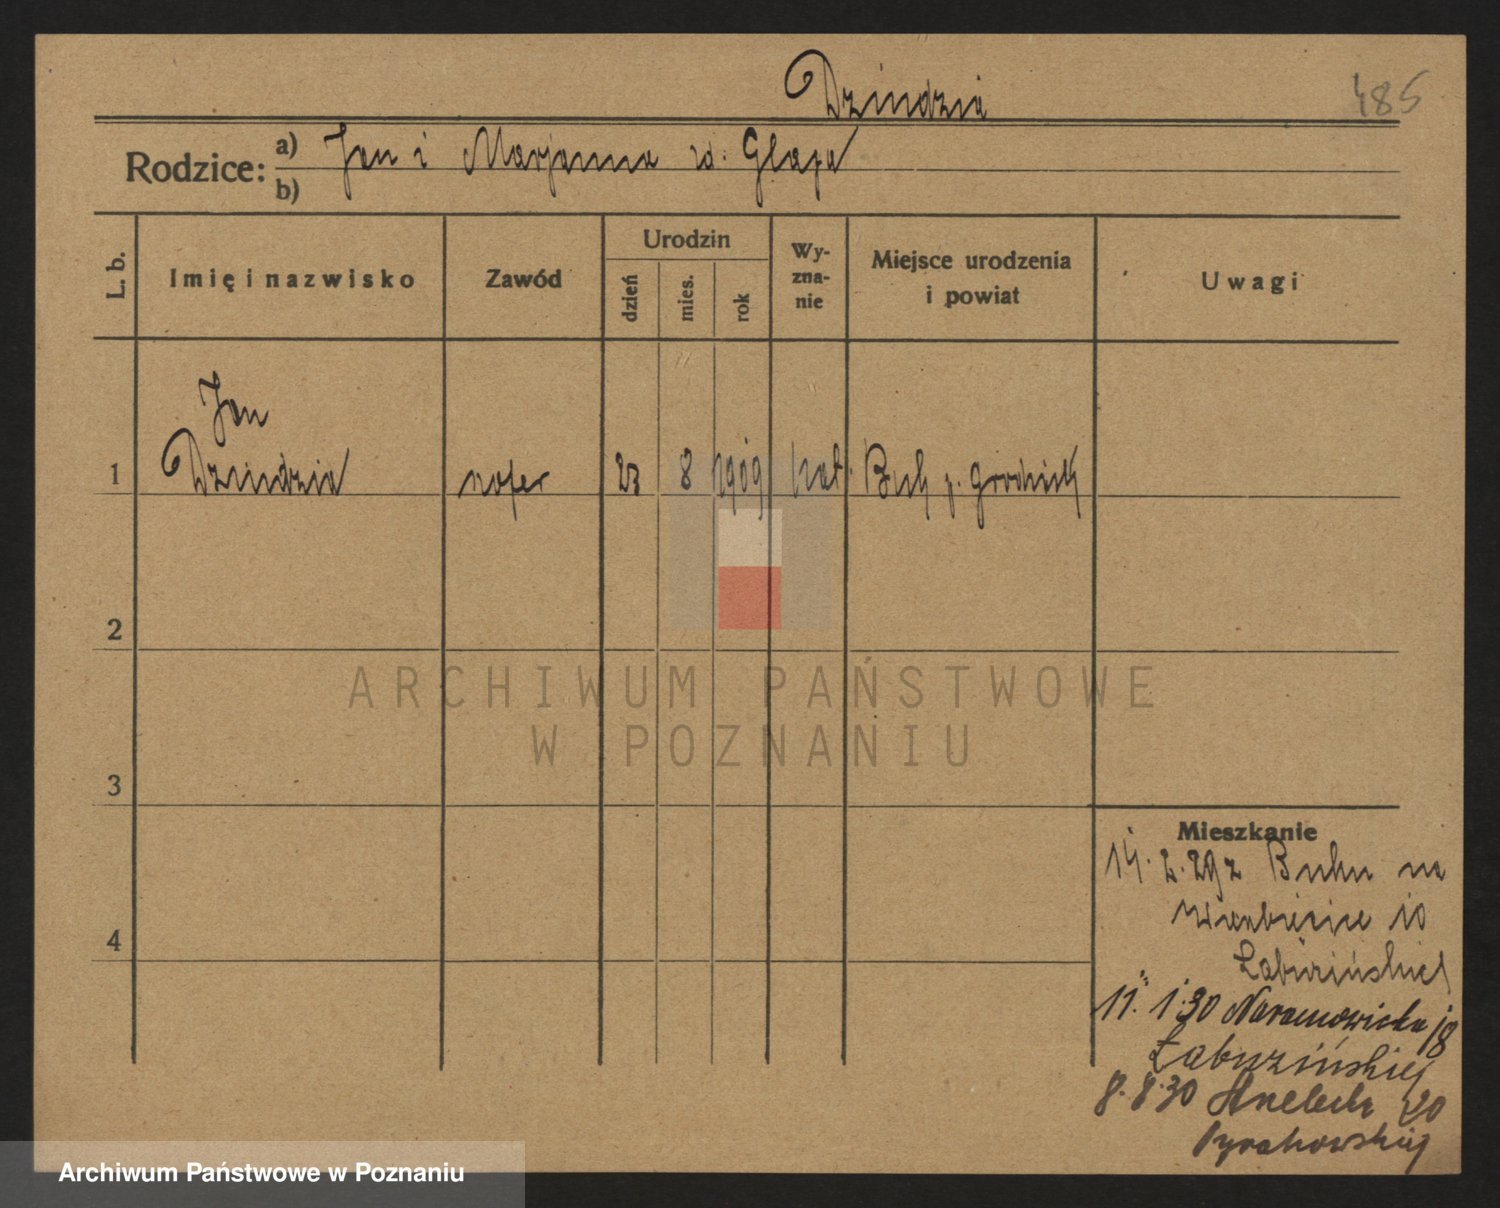 Dzindzia
485
Rodzice:
a) Jan i Marjanna zd. Glapa
b)
L. b.
Imię i nazwisko
Zawód
Urodzin
dzień
mies.
rok
Wy-
zna-
nie
Miejsce urodzenia
i powiat
Uwagi
Jan
1 Dzindzia szofer 23 8 1909 kat. Buk p. Grodzisk
2
ARCHIWUM PAŃSTWOWE
W POZNANIU
3
Mieszkanie
14. 2. 29 z Buku na
Wierzbięcice 10
4
11. 1. 30 Naramowicka 18
8. 8. 30 20
Archiwum Państwowe w Poznaniu